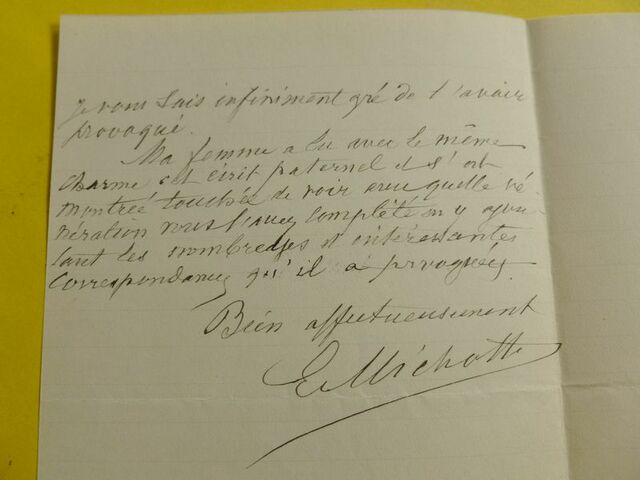 Je vous sais infiniment gré de l'avoir
provoqué.
Ma femme a lu avec le même
charme cet écrit paternel et s'est
montrée touchée de voir avec quelle vé-
nération vous l'avez complété en y ajou-
tant les nombreuses et intéressantes
correspondances qu'il a provoquées.
Bien affectueusement
E Michotte